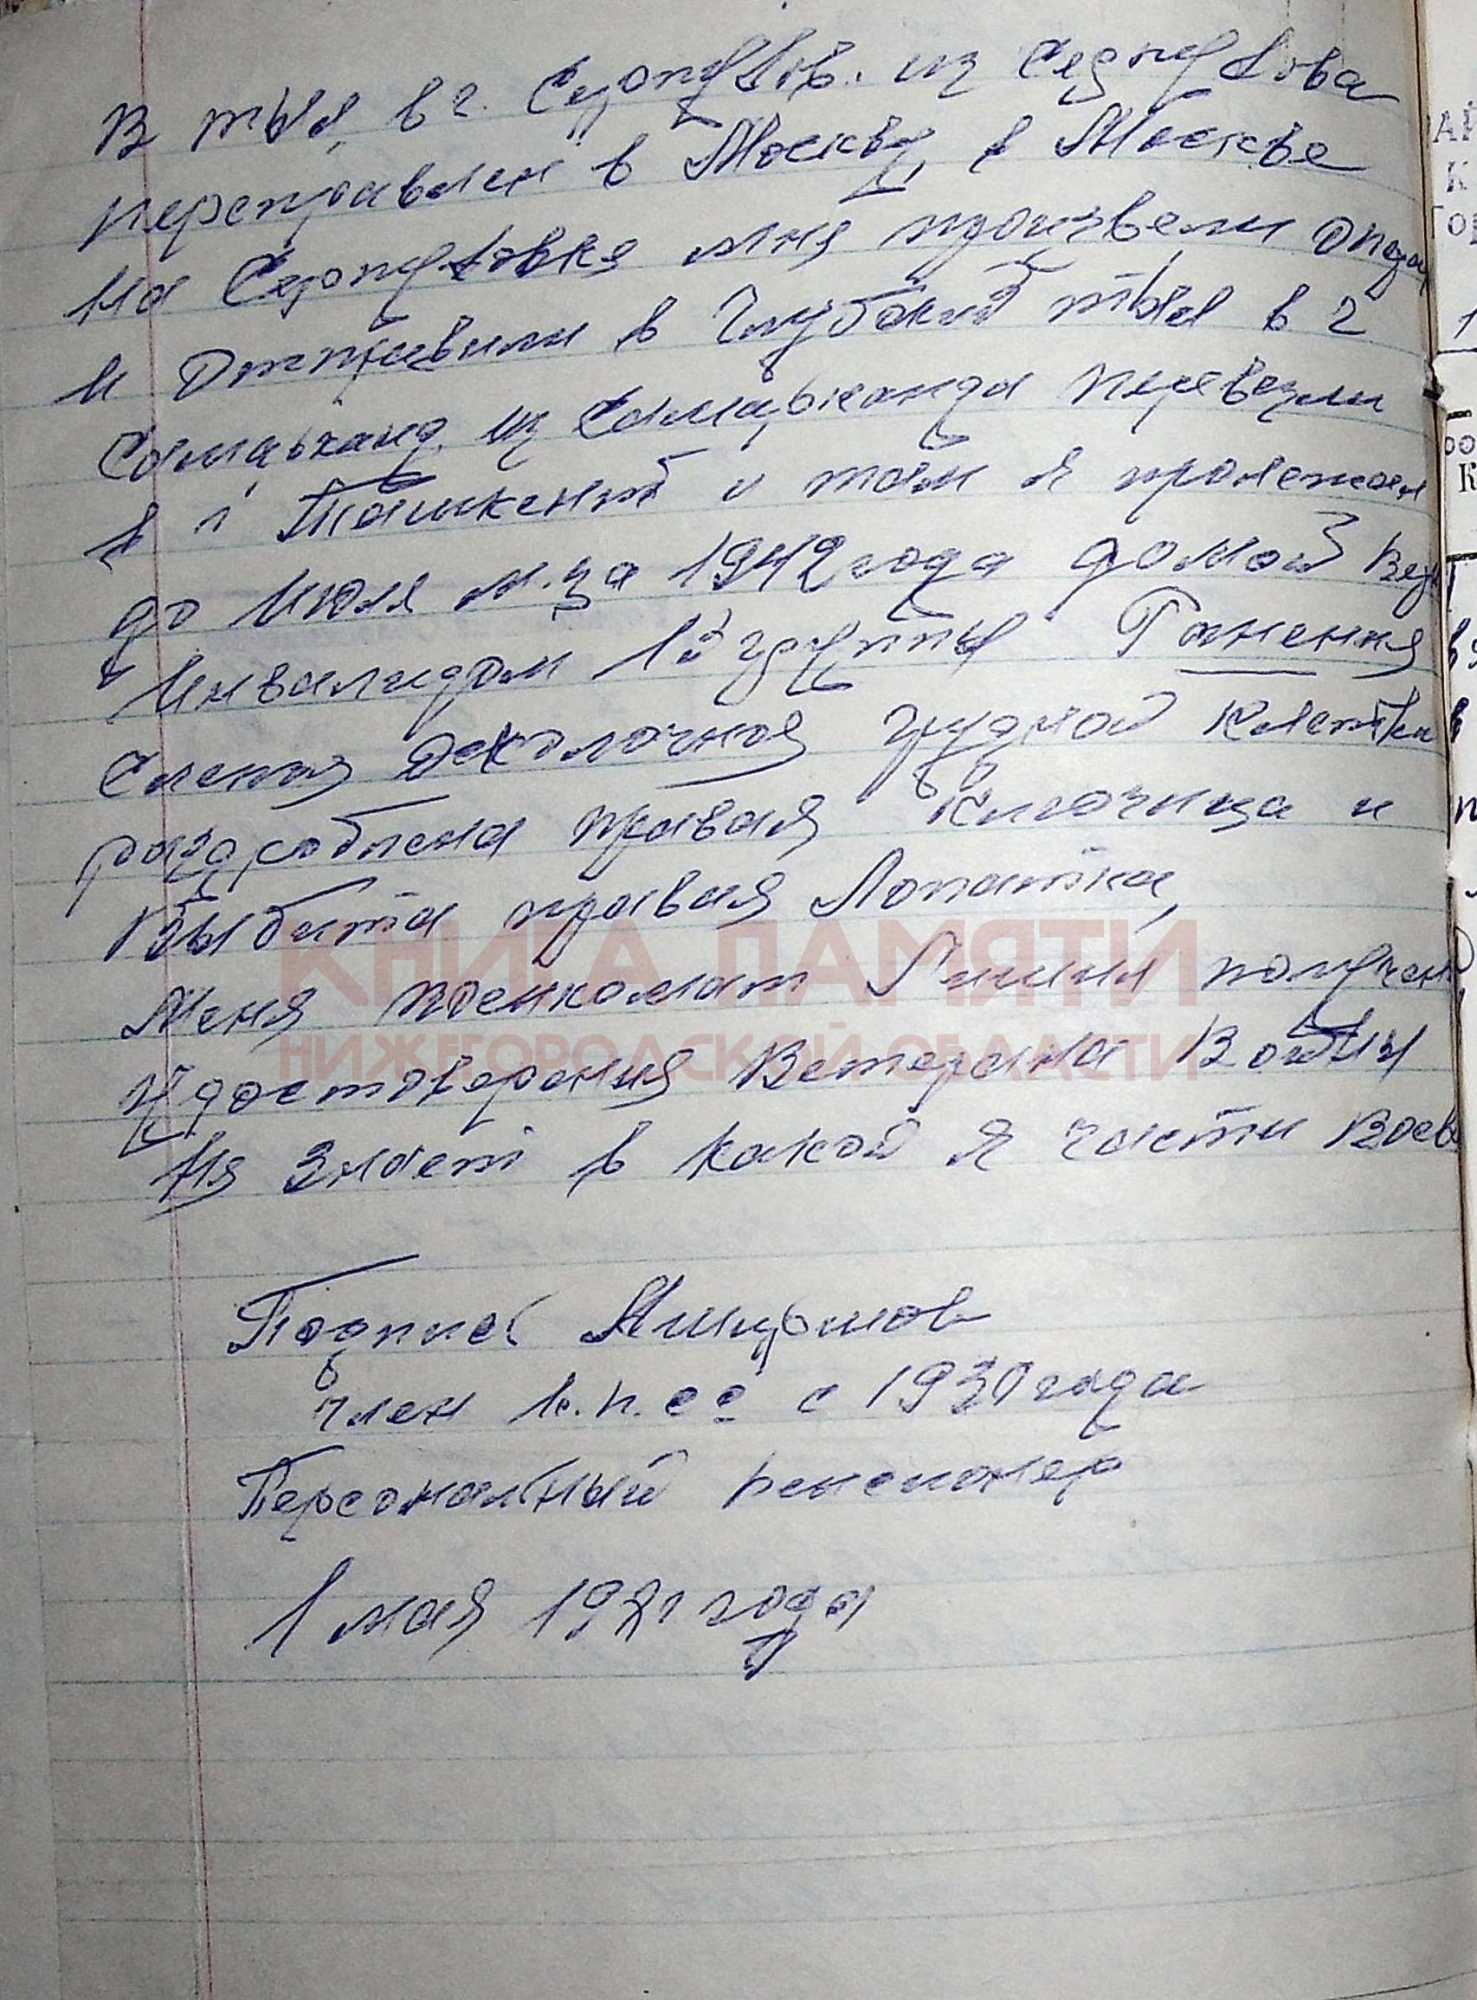 В тыл, в г. Серпухов. из Серпухова
переправлен в Москву, в Москве
на Серпуховке мня произвели опер
и отправили в глубокий тыл в г
Самарканд, из Самарканда перевезли
в г Ташкент и там я пролежал
до июля м-ца 1942 года домой вер
Инвалидом 1й группы Ранения
слепия осколочноя грудной клетки
раздроблена правая ключица и
Выбита правая Лопатка,
Меня военкомат Лишил получен
Удостоверения Ветерана Войны
Ня знает в какой я части воев
Подпись
член к.п.сс с 1930 года
Персональный пенсионер
1 мая года
КНИГА ПАМЯТИ
НИЖЕГОРОДСКОЙ ОБЛАСТИ